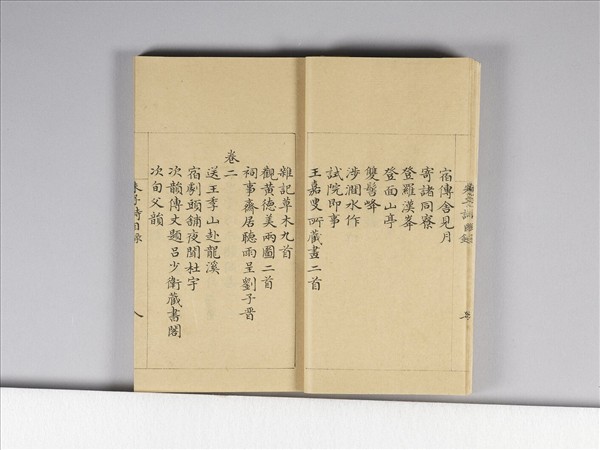 宿傳舍見月
寄諸同寮
登羅漢峯
登面山亭
雙髻峰
涉澗水作
試院即事
王嘉叟所藏畫二首
雜記草木九首
觀黃德美兩圖二首
祠事齋居聽雨呈劉子晋
卷二
送王季山赴龍溪
宿劇頭舖夜聞杜宇
次韻傳丈題呂少衛藏書閣
次旬父韻
朱子詩目録
八